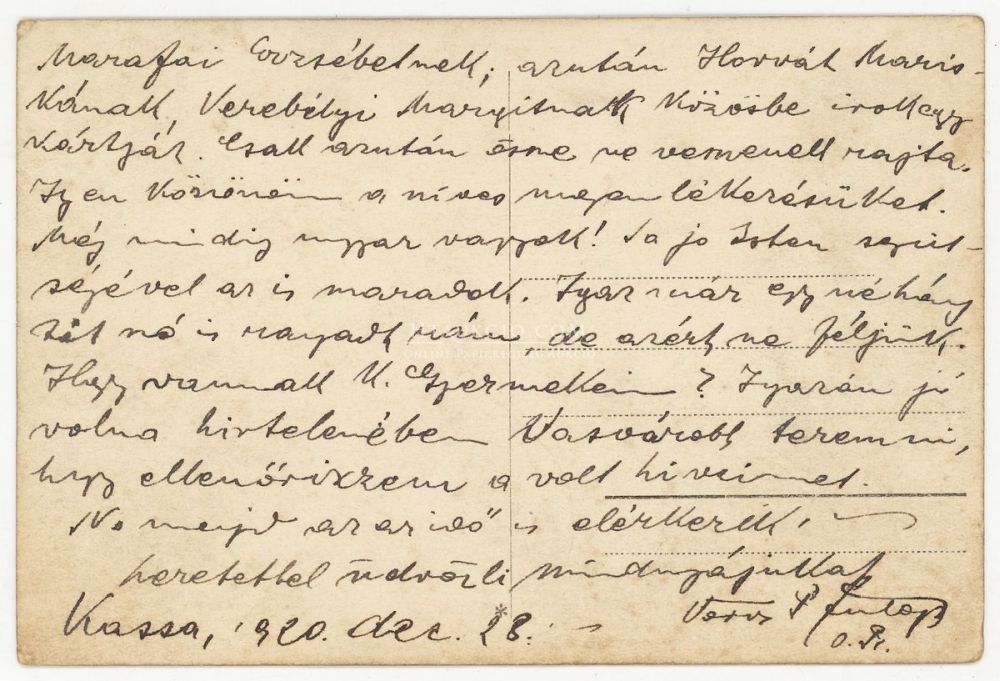 Marafai Erzsébetnek, azután Horvát Maris-
kának, Verebélyi Margitnak közösbe irok egy
kártyát. Csak azután össze ne vesszenek rajta.
Igen köszönöm a szíves megemlékezésüket.
Még mindig magyar vagyok! S a jo Isten segít-
ségével az is maradok. Igaz már egy néhány
tót szó is ragadt rám, de azért ne féljünk.
Hogy vannak K. Gyermekeim? Igazán jó
volna hirtelenében Vasvárott teremni,
hogy ellenőrizzem a volt híveimet.
No majd az az idő is elérkezik.
Szeretettel üdvözli mindnyájukat
Kassa, 1920. dec. 28.
Vörös P. Fülöp